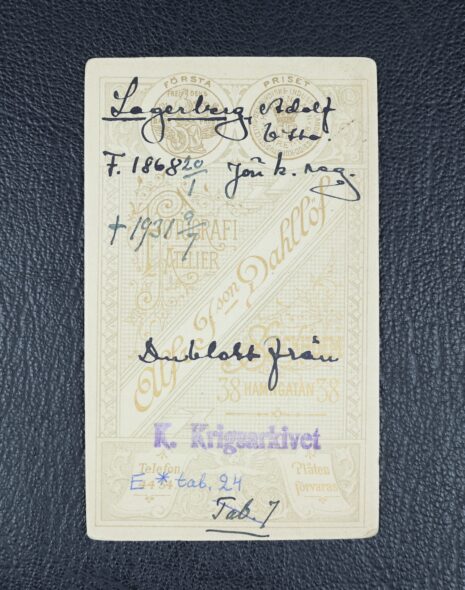 FÖRSTA PRISET
Lagerberg, Adolf
F. 1868 20/1 Jönk. reg.
† 1931 9/7
FOTOGRAFI
ATELIER
Alfr. J:son Dahllöf
38 HAMNGATAN 38
Dublett från
K. Krigsarkivet
Telefon Plåten
förvaras
E * tab. 24
Tab. 7